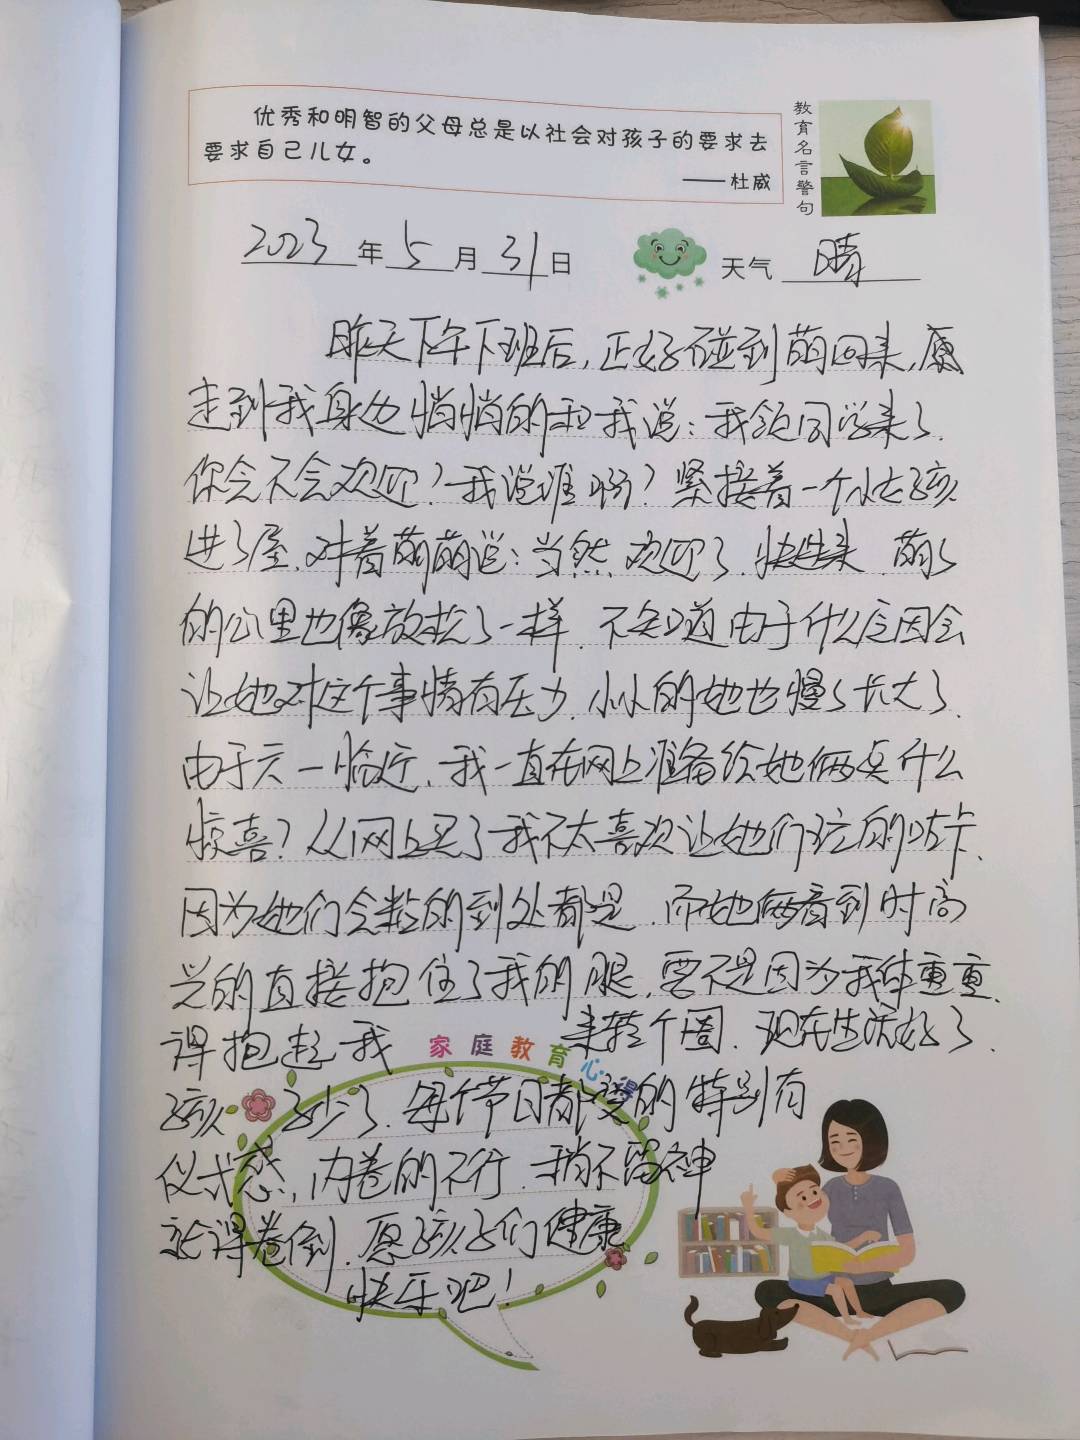 优秀和明智的父母总是以社会对孩子的要求去
要求自己儿女。
——杜威
教育名言警句
2023年5月31日 天气 晴
昨天下午下班后,正好碰到萌回来,
走到我身边悄悄的和我说:我领同学来了.
你会不会欢迎?我说谁啊?紧接着一个小女孩
进了屋.对着萌萌说:当然欢迎了.快进来.萌
的心里也像放松了一样.不知道由于什么原因会
让她对这个事情有压力.小小的她也慢慢长大了.
由于六一临近.我一直在网上准备给她俩点什么
惊喜?从网上买了我不太喜欢让她们玩的咕卡、
因为她们会粘的到处都是.而她俩看到时高
兴的直接抱住了我的腿.要不是因为我体重重.
得抱起我 来转个圈.现在生活好了.
家庭教育心得
孩子少了.每个节日都变的特别有
仪式感,内卷的不行.稍不留神
就得卷倒.愿孩子们健康
快乐吧!